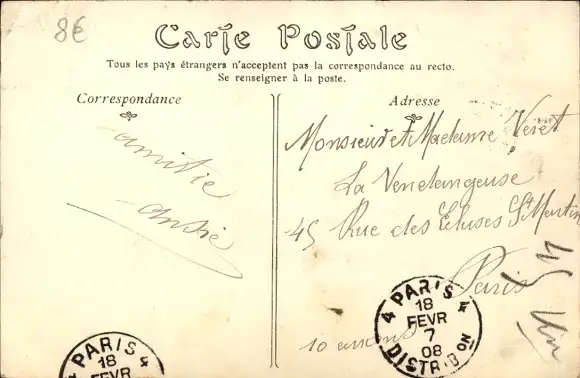 8€
Carte Postale
Tous les pays étrangers n'acceptent pas la correspondance au recto.
Se renseigner à la poste.
Correspondance
Adresse
amitié
André
Monsieur et Madame Veret
La Vendangeuse
45 Rue des Ecluses St Martin
Paris
10
PARIS 4
18
FEVR
7
08
DISTRIB ON
PARIS 4
18
FEVR